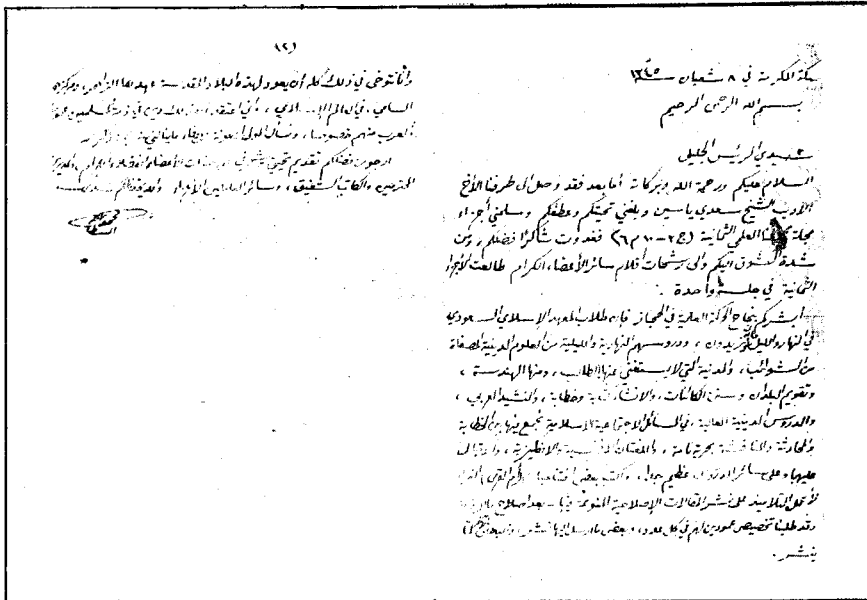 مكة المكرمة في ٨ شعبان سنة ١٣٤٥
بسم الله الرحمن الرحيم
سيدي الرئيس الجليل
السلام عليكم ورحمة الله وبركاته أما بعد فقد وصل الى طرفنا الأخ
الأديب الشيخ سعدي ياسين وبلغني تحيتكم وعطفكم وسلمني أجزاء
مجلة العلمي الثمانية (ج ٣ - ١٠ م ٦) فغدوت شاكرًا فضلكم ومن
شدة الشوق اليكم والى رشحات أقلام سائر الأعضاء الكرام طالعت الأجزاء
الثمانية في جلسة واحدة .
أبشركم بنجاح الحركة العلمية في الحجاز فإن طلاب المعهد الإسلامي السعودي
في النهار والليل يزيدون ، ودروسهم النهارية والليلية من العلوم الدينية المصفاة
من الشوائب ، والمدنية التي لا يستغني عنها الطالب ، ومنها الهندسة ،
وتقويم البلدان وسنن الكائنات ، والانشاء كتابة وخطابة ، والنشيد العربي ،
والدروس الدينية العالية ، في المسائل الاجتماعية الاسلامية نجمع فيها بين الخطابة
والمحادثة والمناقشة بحرية تامة ، واللغتان الافرنسية والانكليزية ، والاقبال
عليها وعلى سائر الدروس عظيم جدا ، وكتبت بعض افتتاحيات (أم القرى)
لأحمل التلاميذ على نشر المقالات الإصلاحية المتنوعة فيها - بعد اصلاح
وقد طلبنا تخصيص عمودين لهم في كل عدد ، وبعض ما أرسل اليها نشر ،
ينشر .
(٢)
وأنا نتوخى في ذلك كله أن يعود لهذه البلاد المقدسة عهدها الزاهر ، ومركزها
السامي ، في العالم الإسلامي ، أني أعتقد أن ذلك دين في ذمة المسلمين
العرب منهم خصوصا ، ونسأل المولى المعونة
ارجو من فضلكم تقديم تحيتي وشوقي الأعضاء الفضلاء الكرام ، والمدير
المحترمين والكاتب الشفيق ، وسائر العاملين الأبرار والله يحفظكم سيدي
محمد بهجة
البيطار